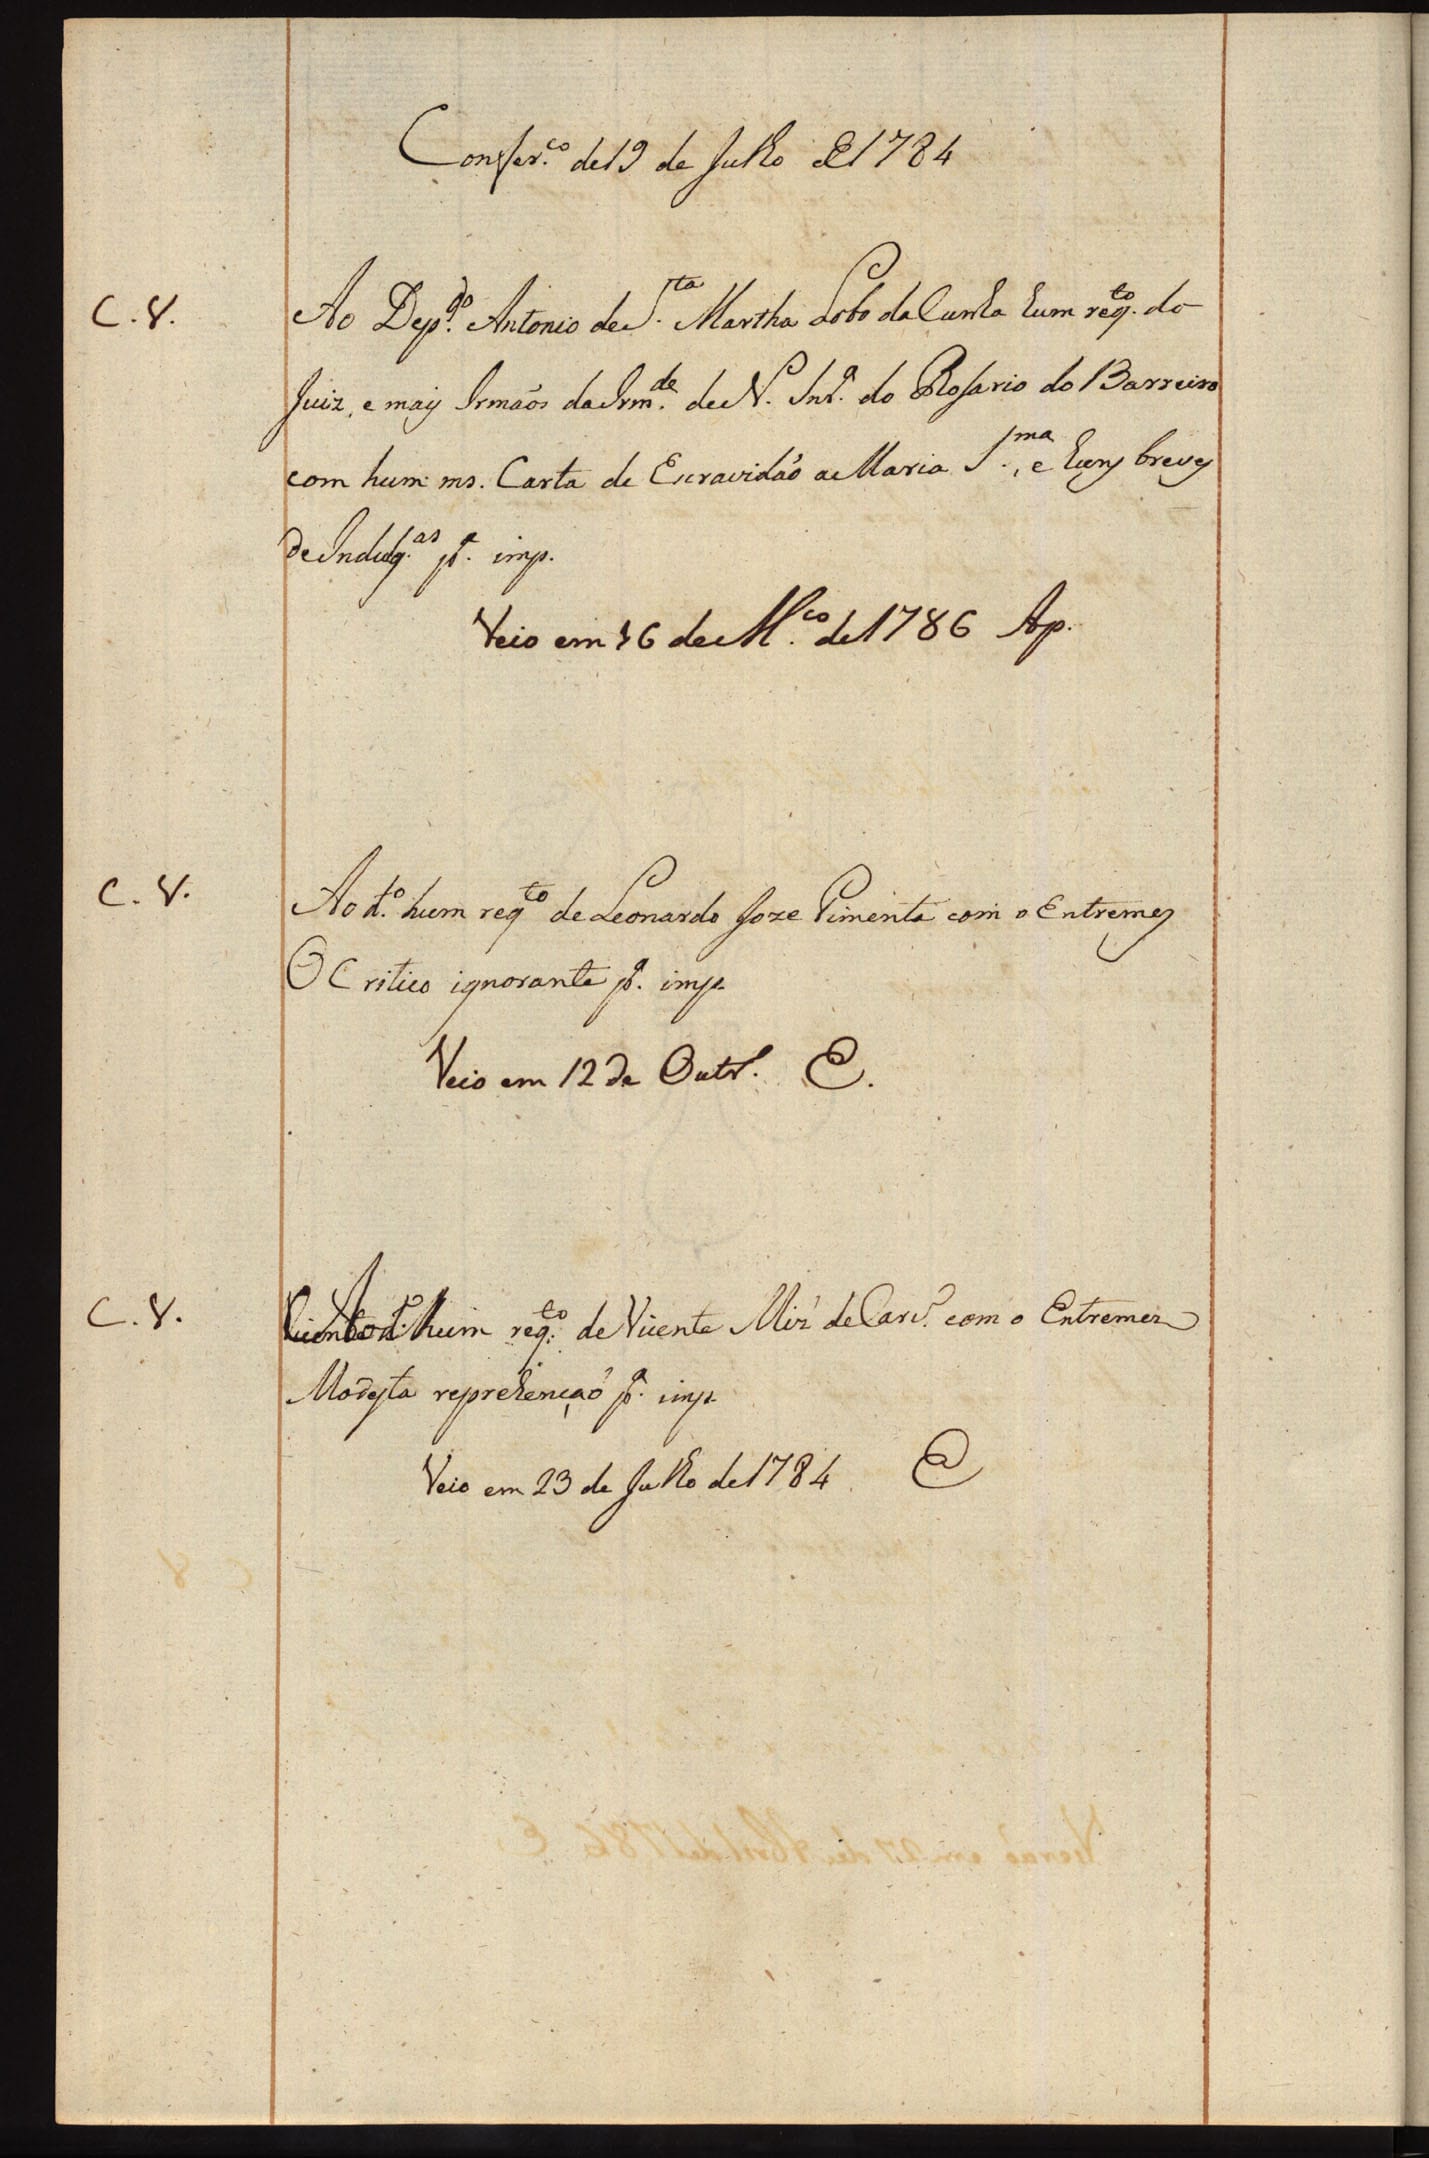 Confer.co de 19 de Julho de 1784
C. V.
Ao Dep.do Antonio de S.ta Martha Lobo da Cunha hum req.to do
Juiz, e mais Irmãos da Irm.de de N. Snr.a do Rosario do Barreiro
com hum ms. Carta de Escravidaõ a Maria S.ma, e huns breves
de Indulg.as p.a imp.
Veio em 16 de M.co de 1786 Ap.
C. V.
Ao d.o hum req.to de Leonardo Joze Pimenta com o Entremes
O Critico ignorante p.a imp.
Veio em 12 de Outr.o E.
C. V.
Ao d.o hum req.to de Vicente Miz de Carv.o com o Entremez
Modesta reprehençaõ p.a imp.
Veio em 23 de Julho de 1784 E